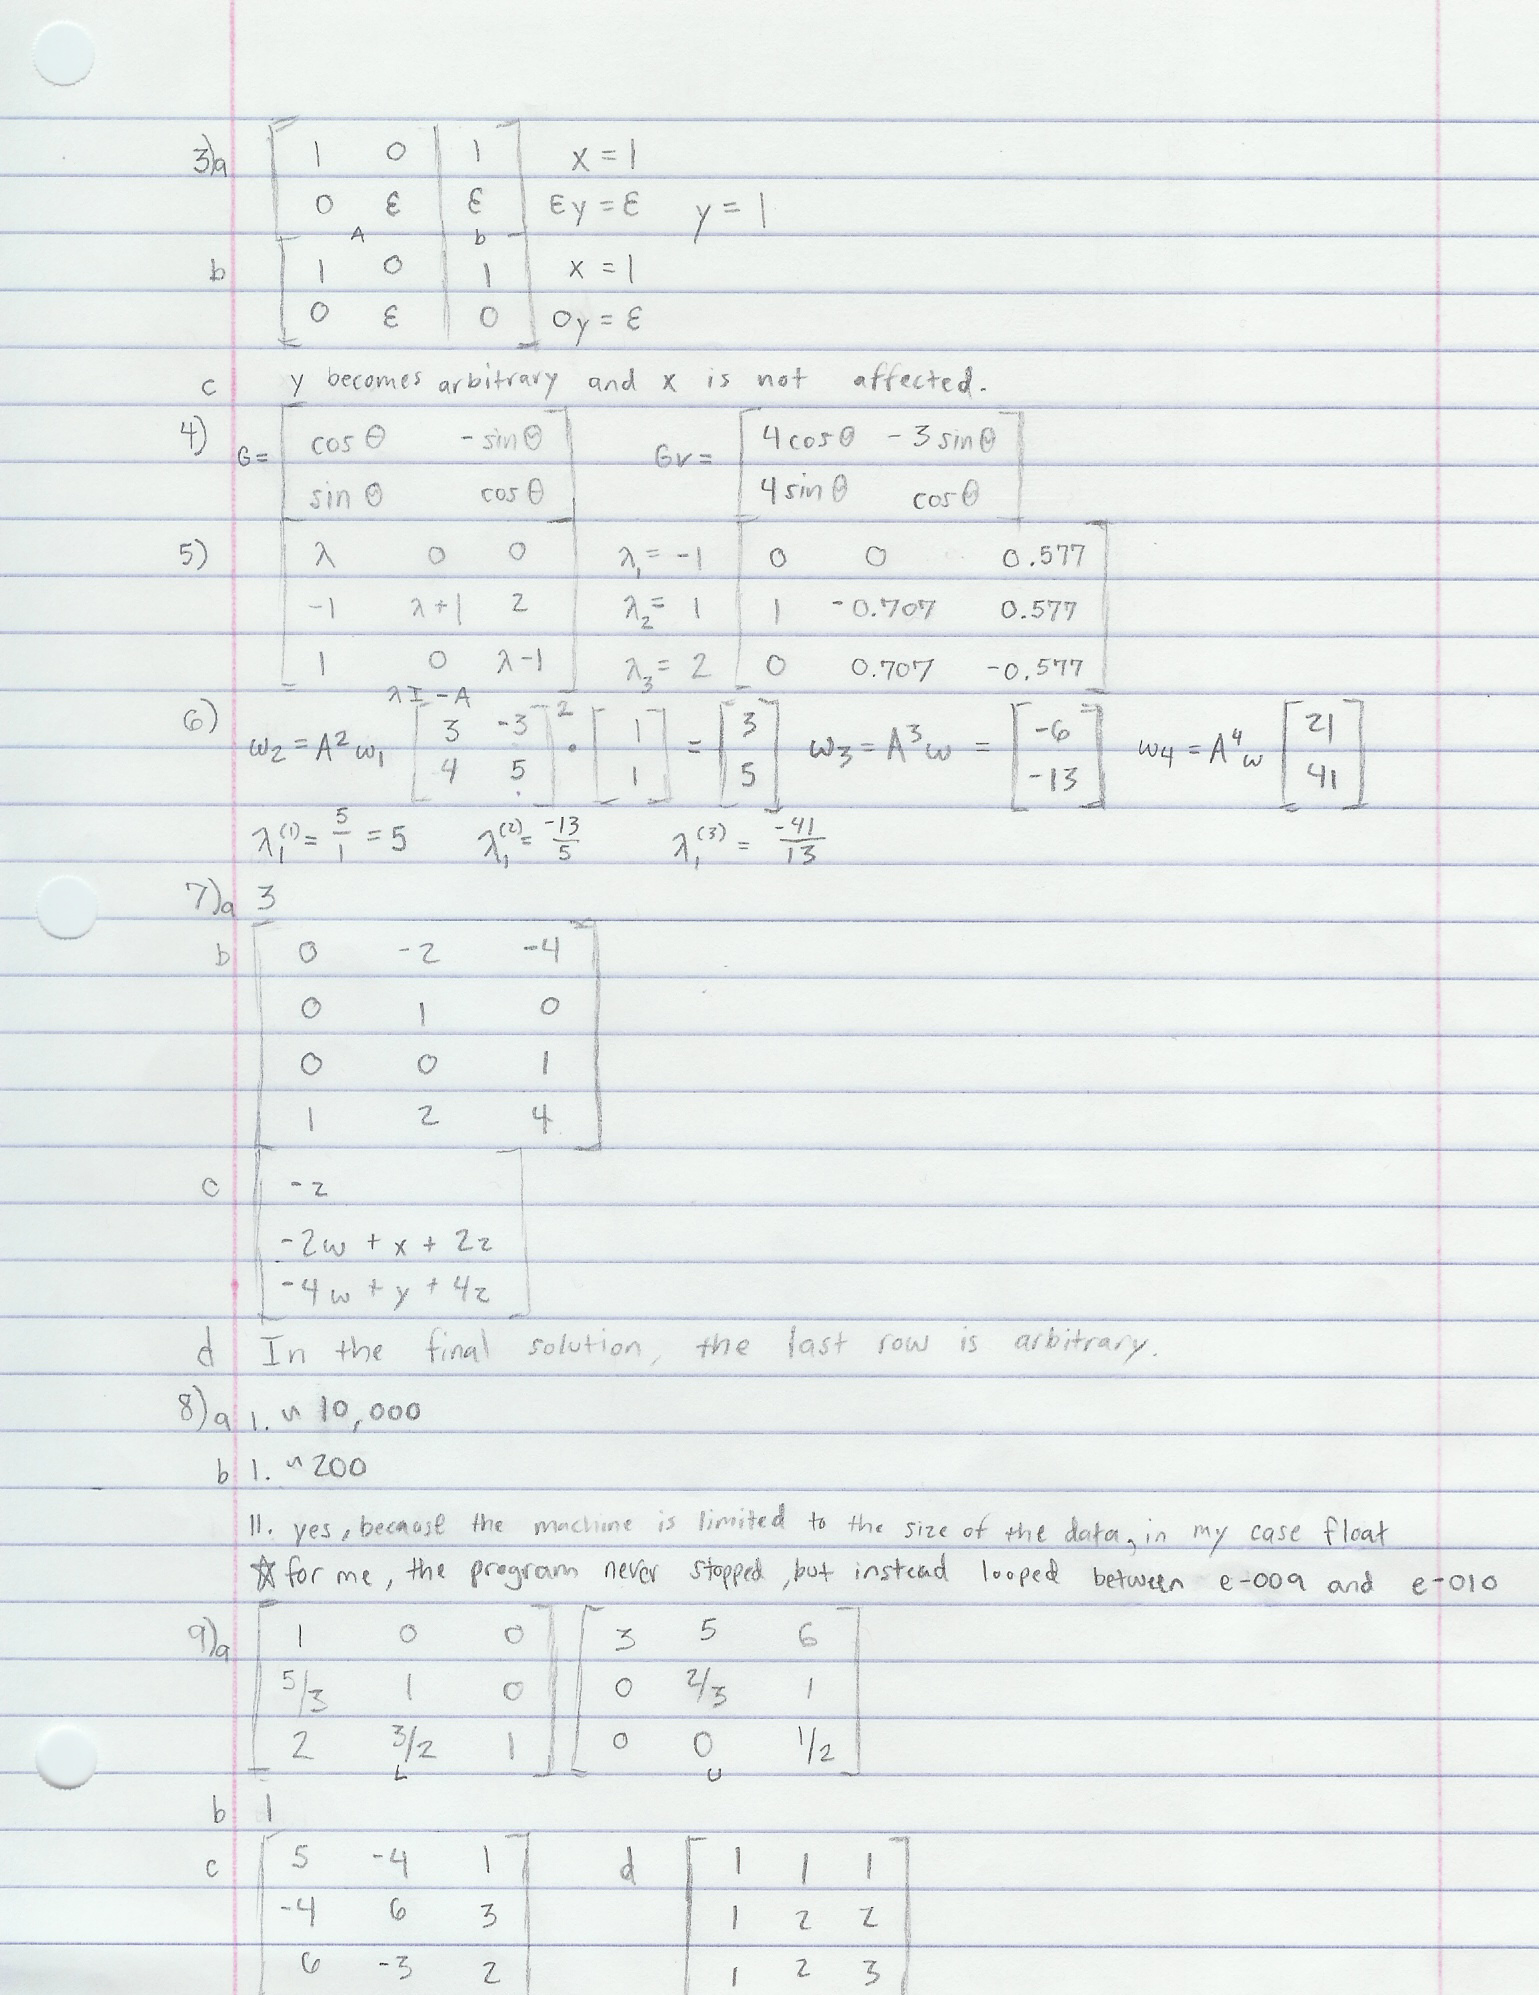 3)a 1 0 1 x = 1
0 ε ε εy = ε y = 1
A b
b 1 0 1 x = 1
0 ε 0 0y = ε
c y becomes arbitrary and x is not affected.
4) G = cos θ - sin θ Gv = 4 cos θ - 3 sin θ
sin θ cos θ 4 sin θ cos θ
5) λ 0 0 λ₁ = -1 0 0 0.577
-1 λ+1 2 λ₂ = 1 1 -0.707 0.577
1 0 λ-1 λ₃ = 2 0 0.707 -0.577
λI - A
6) ω₂ = A² ω₁ [3 -3; 4 5]² · [1; 1] = [3; 5] ω₃ = A³ω = [-6; -13] ω₄ = A⁴ω [21; 41]
λ₁⁽¹⁾ = 5/1 = 5 λ₁⁽²⁾ = -13/5 λ₁⁽³⁾ = -41/13
7)a 3
b 0 -2 -4
0 1 0
0 0 1
1 2 4
c -z
-2w + x + 2z
-4w + y + 4z
d In the final solution, the last row is arbitrary.
8)a 1. ~ 10,000
b 1. ~200
11. yes, because the machine is limited to the size of the data, in my case float
☆ for me, the program never stopped, but instead looped between e-009 and e-010
9)a 1 0 0 3 5 6
5/3 1 0 0 2/3 1
2 3/2 1 0 0 1/2
L U
b 1
c 5 -4 1 d 1 1 1
-4 6 3 1 2 2
6 -3 2 1 2 3